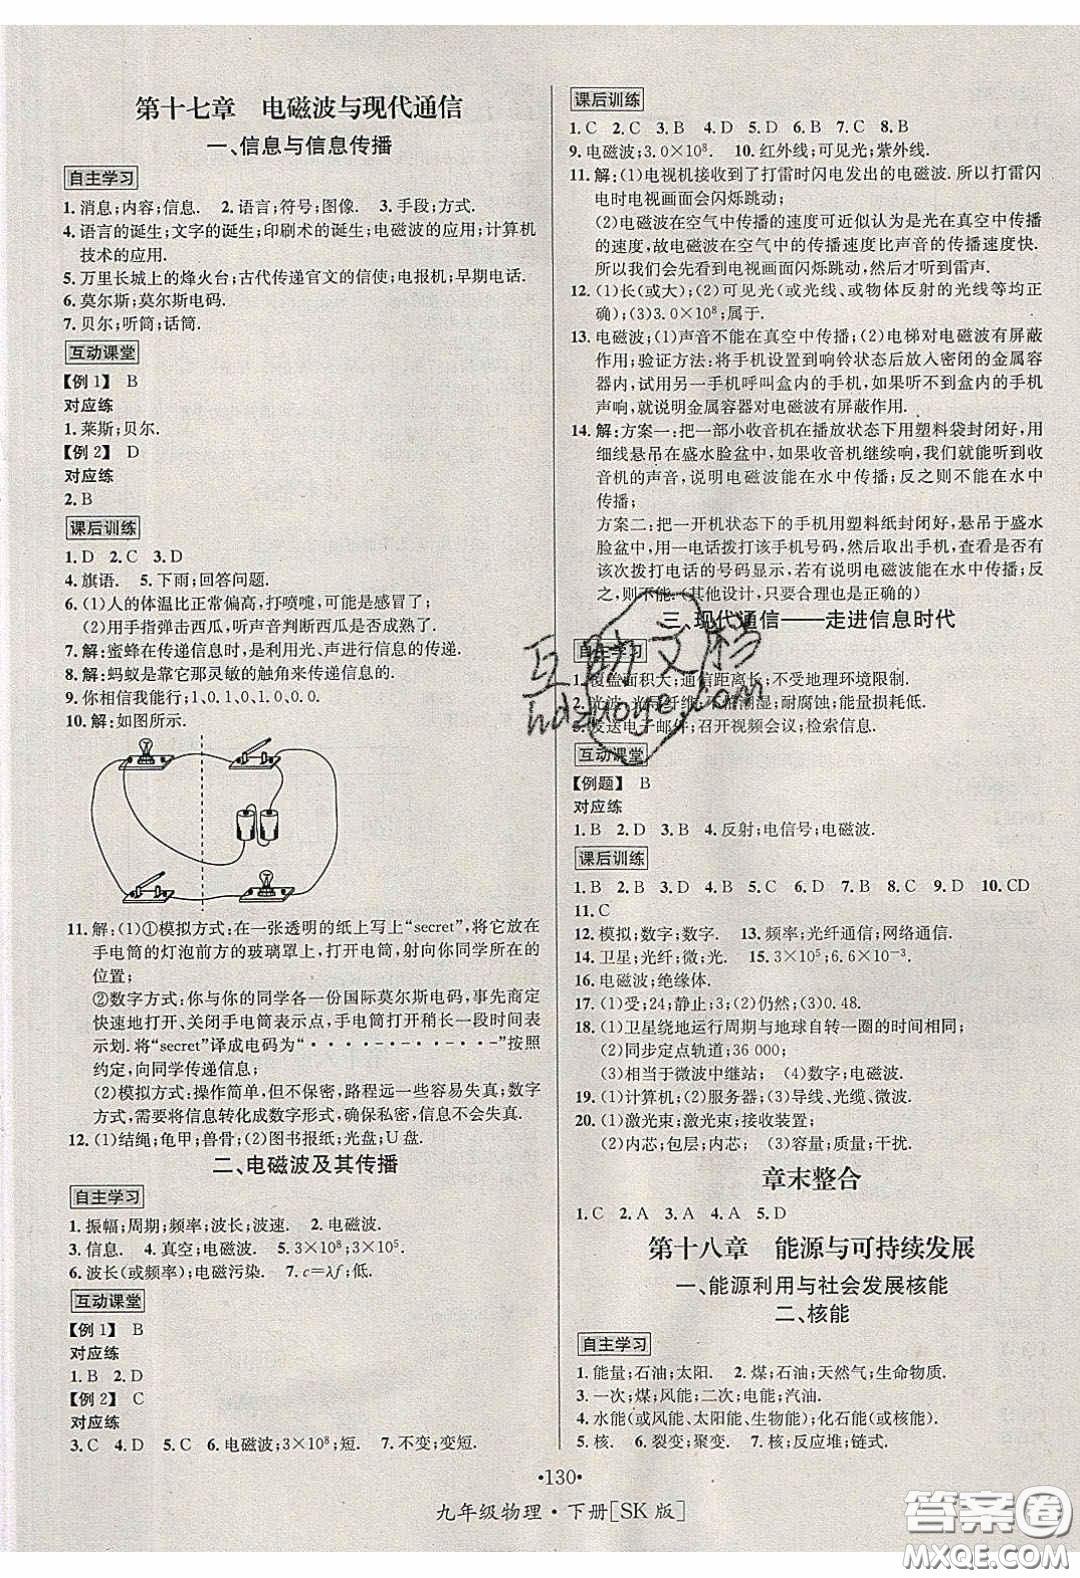 第十七章　电磁波与现代通信
一、信息与信息传播
自主学习
1. 消息;内容;信息.　2. 语言;符号;图像.　3. 手段;方式.
4. 语言的诞生;文字的诞生;印刷术的诞生;电磁波的应用;计算机
技术的应用.
5. 万里长城上的烽火台;古代传递官文的信使;电报机;早期电话.
6. 莫尔斯;莫尔斯电码.
7. 贝尔;听筒;话筒.
互动课堂
【例1】　B
对应练
1. 莱斯;贝尔.
【例2】　D
对应练
2. B
课后训练
1. D　2. C　3. D
4. 旗语.　5. 下雨;回答问题.
6. (1)人的体温比正常偏高,打喷嚏,可能是感冒了;
(2)用手指弹击西瓜,听声音判断西瓜是否成熟了.
7. 解:蜜蜂在传递信息时,是利用光、声进行信息的传递.
8. 解:蚂蚁是靠它那灵敏的触角来传递信息的.
9. 你相信我能行;1、0、1、0、0、0、1.
10. 解:如图所示.
11. 解:(1)①模拟方式:在一张透明的纸上写上“secret”,将它放在
手电筒的灯泡前方的玻璃罩上,打开电筒,射向你同学所在的
位置;
②数字方式:你与你的同学各一份国际莫尔斯电码,事先商定
快速地打开、关闭手电筒表示点,手电筒打开稍长一段时间表
示划.将“secret”译成电码为“・・・・-・-・・-・・-”按照
约定,向同学传递信息;
(2)模拟方式:操作简单,但不保密,路程远一些容易失真;数字
方式,需要将信息转化成数字形式,确保私密,信息不会失真.
12. (1)结绳;龟甲;兽骨;(2)图书报纸;光盘;U盘.
二、电磁波及其传播
自主学习
1. 振幅;周期;频率;波长;波速.　2. 电磁波.
3. 信息.　4. 真空;电磁波.　5. 3×10⁸;3×10⁸.
6. 波长(或频率);电磁污染.　7. c=λf;低.
互动课堂
【例1】　B
对应练
1. B　2. D
【例2】　C
对应练
3. C　4. D　5. C　6. 电磁波;3×10⁸;短.　7. 不变;变短.
课后训练
1. C　2. C　3. B　4. D　5. D　6. B　7. C　8. B
9. 电磁波;3.0×10⁸.　10. 红外线;可见光;紫外线.
11. 解:(1)电视机接收到了打雷时闪电发出的电磁波.所以打雷闪
电时电视画面会闪烁跳动;
(2)电磁波在空气中传播的速度可近似认为是光在真空中传播
的速度,故电磁波在空气中的传播速度比声音的传播速度快.
所以我们会先看到电视画面闪烁跳动,然后才听到雷声.
12. (1)长(或大);(2)可见光(或光线、或物体反射的光线等均正
确);(3)3.0×10⁸;属于.
13. 电磁波;(1)声音不能在真空中传播;(2)电梯对电磁波有屏蔽
作用;验证方法:将手机设置到响铃状态后放入密闭的金属容
器内,试用另一手机呼叫盒内的手机,如果听不到盒内的手机
声响,就说明金属容器对电磁波有屏蔽作用.
14. 解:方案一:把一部小收音机在播放状态下用塑料袋封闭好,用
细线悬吊在盛水脸盆中,如果收音机继续响,我们就能听到收
音机的声音,说明电磁波能在水中传播;否则不能在水中
传播;
方案二:把一开机状态下的手机用塑料纸封闭好,悬吊于盛水
脸盆中,用一电话拨打该手机号码,然后取出手机,查看是否有
该次拨打电话的号码显示,若有说明电磁波能在水中传播,反
之,则不能.(其他设计,只要合理也是正确的)
三、现代通信——走进信息时代
自主学习
1. 覆盖面积大;通信距离长;不受地理环境限制.
2. 光波;光导纤维;不怕潮湿;耐腐蚀;能量损耗低.
3. 发送电子邮件;召开视频会议;检索信息.
互动课堂
【例题】　B
对应练
1. B　2. D　3. B　4. 反射;电信号;电磁波.
课后训练
1. B　2. B　3. D　4. D　5. D　6. B　7. C　8. C　9. D　10. CD
11. C
12. 模拟;数字;数字.　13. 频率;光纤通信;网络通信.
14. 卫星;光纤;微;光.　15. 3×10⁵;6.6×10⁻³.
16. 电磁波;绝缘体.
17. (1)受;24;静止;3;(2)仍然;(3)0.48.
18. (1)卫星绕地运行周期与地球自转一圈的时间相同;
(2)同步定点轨道;36 000;
(3)相当于微波中继站;　(4)数字;电磁波.
19. (1)计算机;(2)服务器;(3)导线、光缆、微波.
20. (1)激光束;激光束;接收装置;
(2)内芯;包层;内芯;　(3)容量;质量;干扰.
章末整合
1. C　2. A　3. A　4. A　5. D
第十八章　能源与可持续发展
一、能源利用与社会发展核能
二、核能
自主学习
1. 能量;石油;太阳.　2. 煤;石油;天然气;生命物质.
3. 一次;煤;风能;二次;电能;汽油.
4. 水能(或风能、太阳能、生物能);化石能(或核能).
5. 核.　6. 裂变;聚变.　7. 核;反应堆;链式.
·130·
九年级物理・下册[SK版]
互助文档
hdzuoye.com
答案圈
MXQE.COM